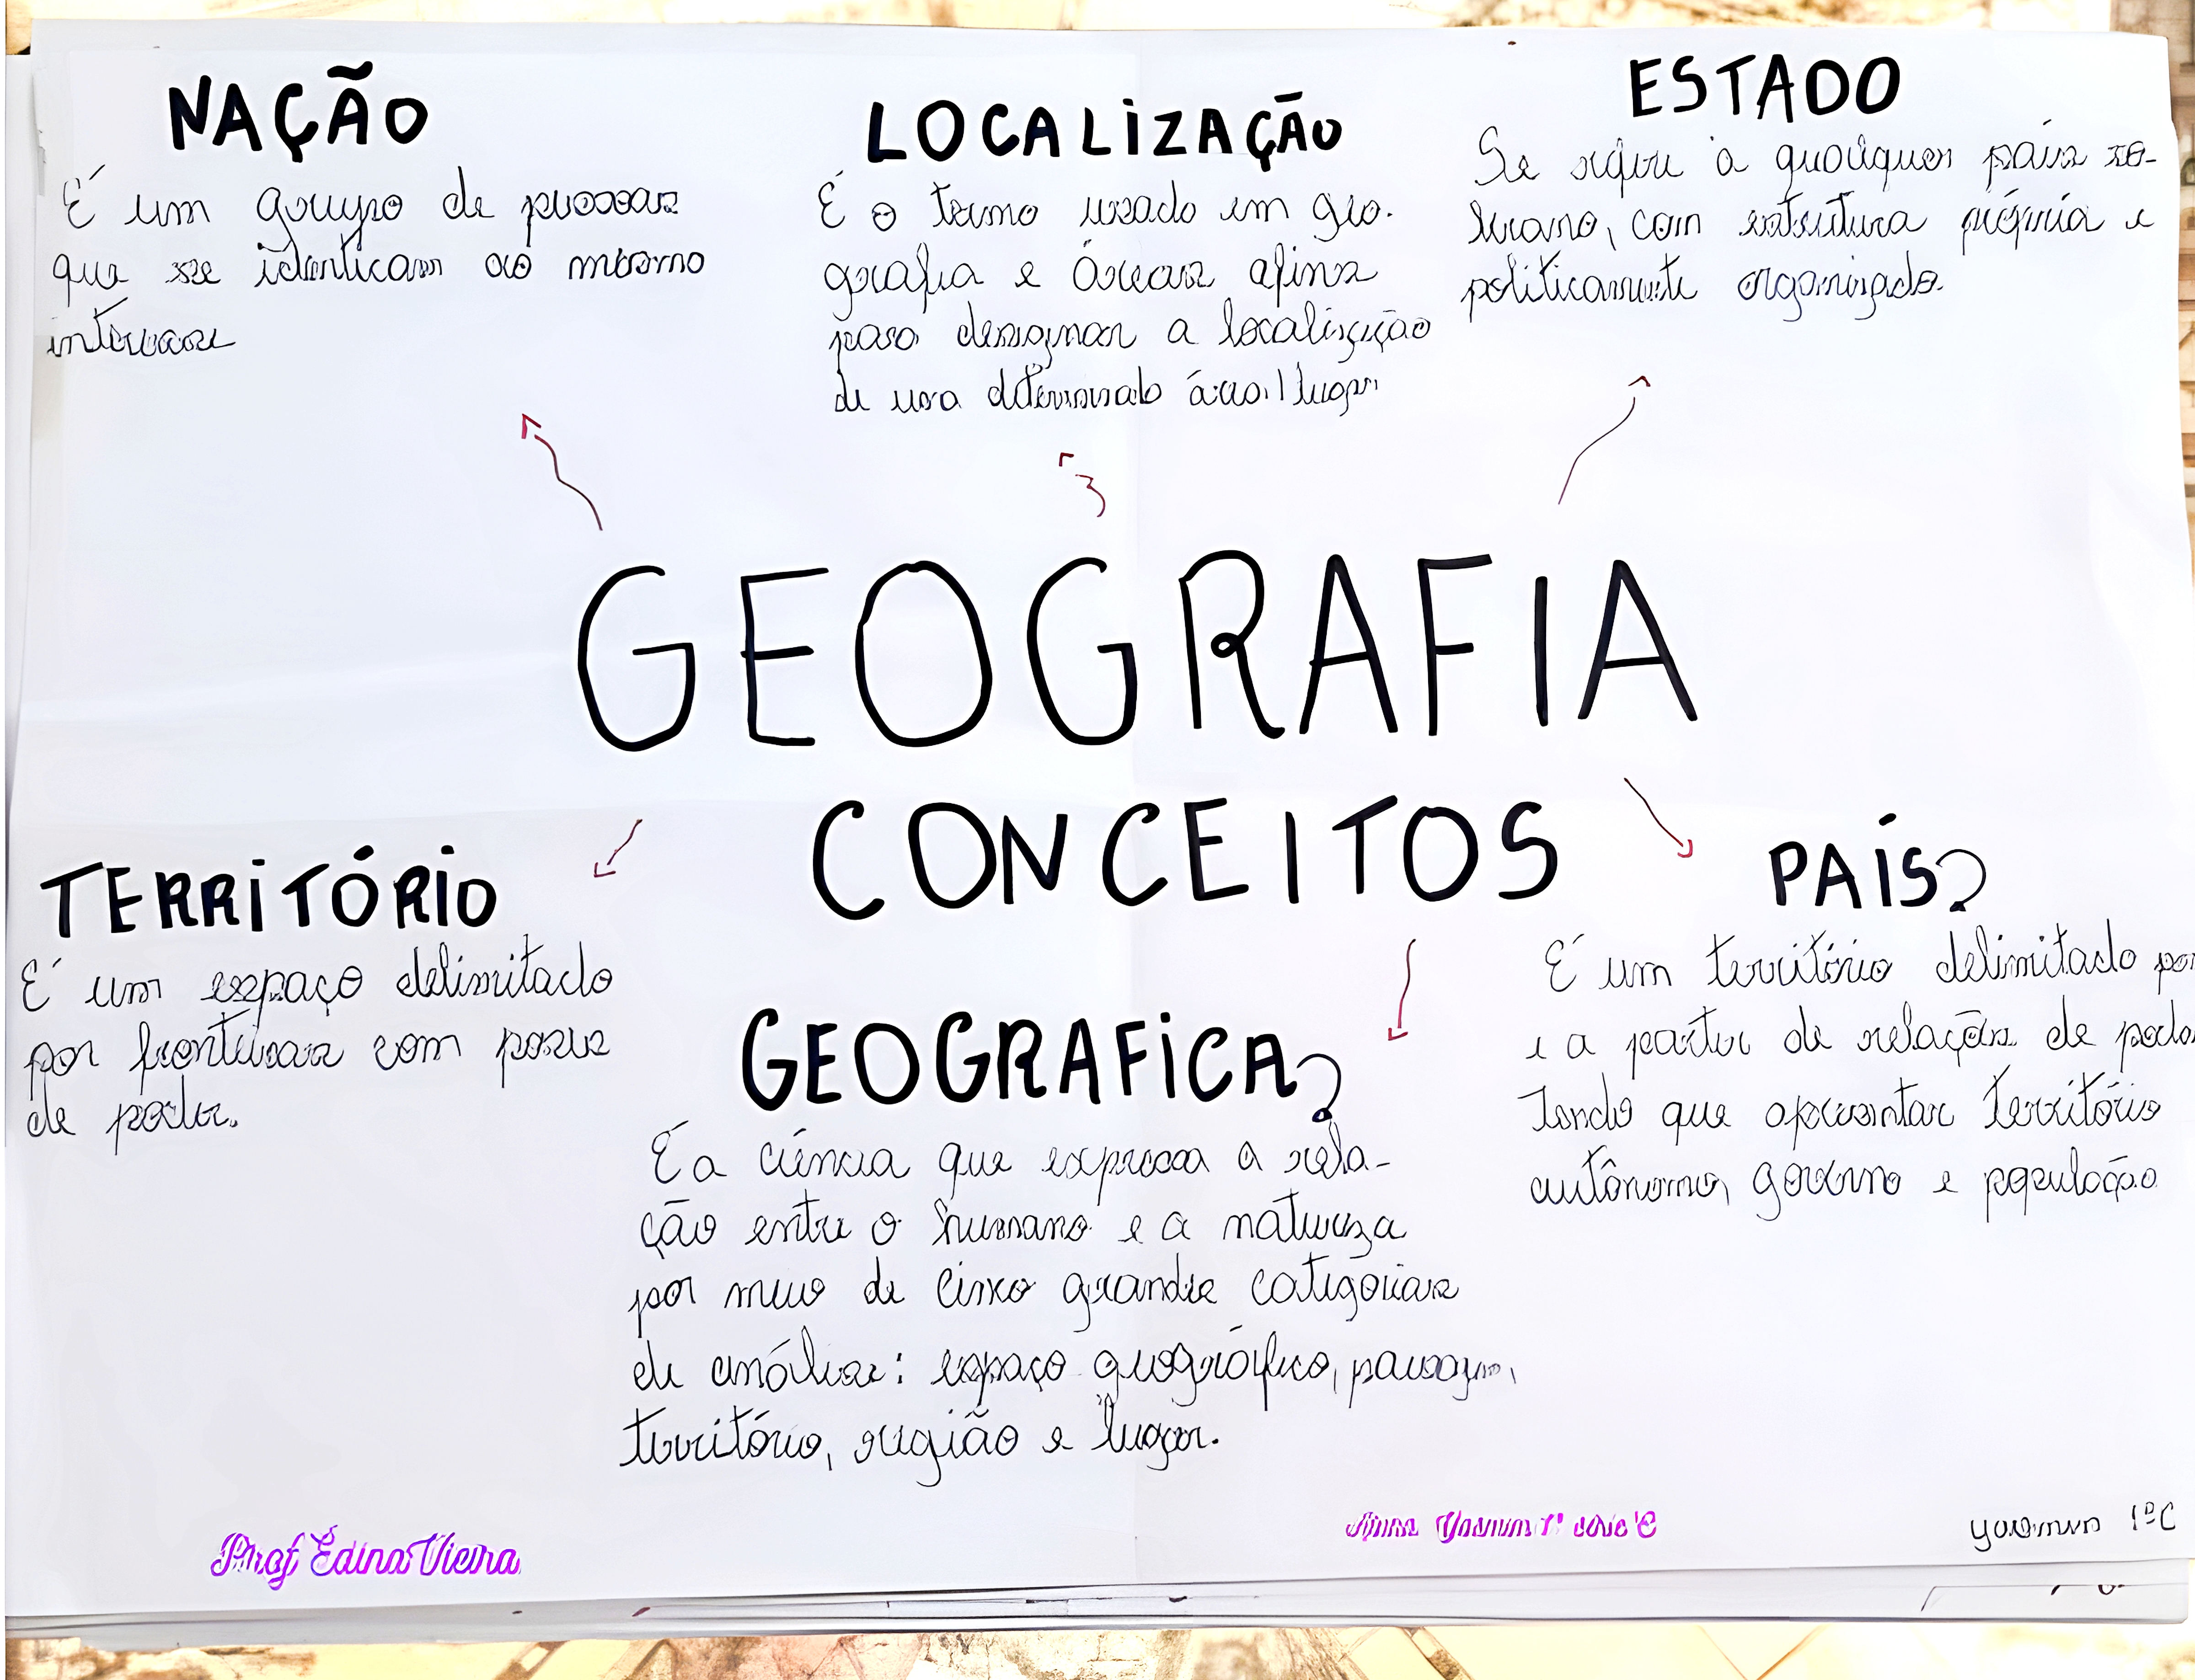 NAÇÃO
É um grupo de pessoas
que se identicam ao mesmo
interesse
LOCALIZAÇÃO
É o termo usado em geo-
grafia e áreas afins
para designar a localização
de uma determinado área/lugar
ESTADO
Se refere à qualquer país so-
berano, com estrutura própria e
politicamente organizado.
GEOGRAFIA
CONCEITOS
TERRITÓRIO
É um espaço delimitado
por fronteiras com posse
de poder.
GEOGRAFICA?
É a ciência que expressa a rela-
ção entre o humano e a natureza
por meio de cinco grandes categorias
de análise: espaço geográfico, paisagem,
território, região e lugar.
PAÍS?
É um território delimitado por
e a partir de relações de poder
Tendo que apresentar território
autônomo, governo e população
Prof Edina Vieira
Anna Yasmim 1ª série C
Yasmim 1ºC